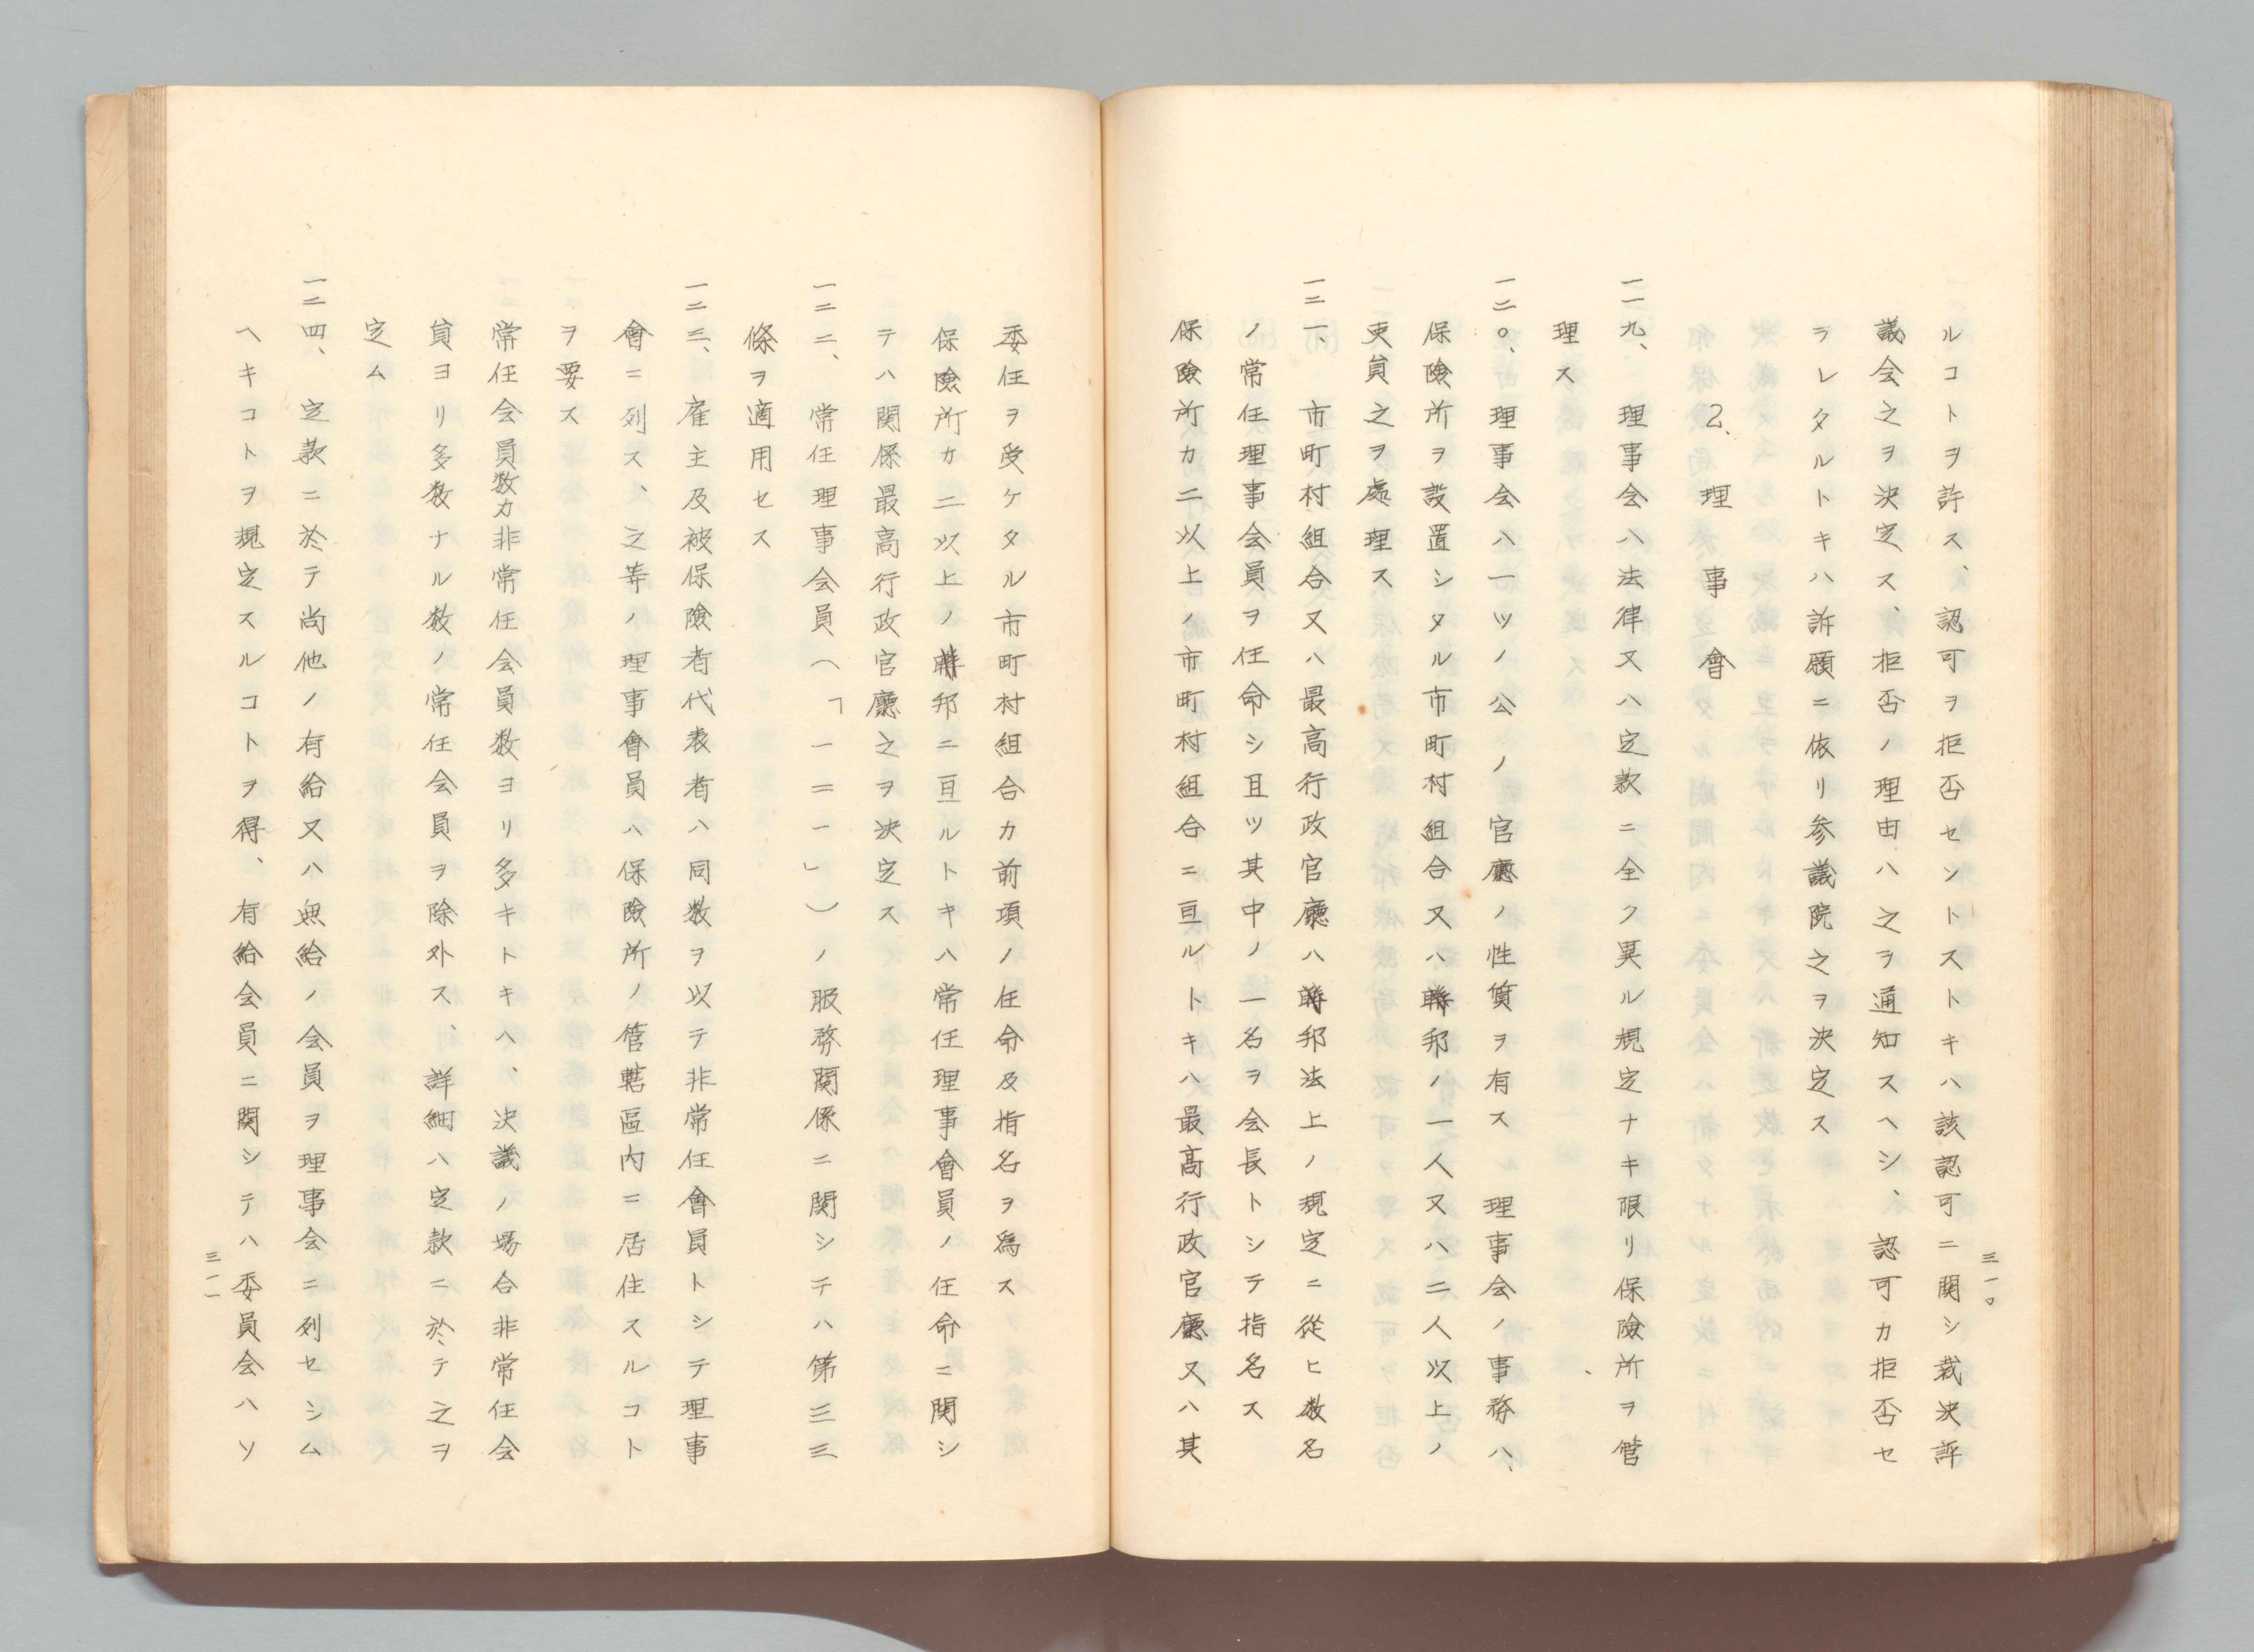 三一〇
ルコトヲ許ス、認可ヲ拒否セントストキハ該認可ニ関シ裁決評
議会之ヲ決定ス、拒否ノ理由ハ之ヲ通知スヘシ、認可カ拒否セ
ラレタルトキハ訴願ニ依リ参議院之ヲ決定ス
2、理事會
一一九、理事会ハ法律又ハ定款ニ全ク異ル規定ナキ限リ保險所ヲ管
理ス
一二〇、理事会ハ一ツノ公ノ官廳ノ性質ヲ有ス 理事会ノ事務ハ、
保險所ヲ設置シタル市町村組合又ハ聯邦ノ一人又ハ二人以上ノ
吏員之ヲ處理ス
一二一、市町村組合又ハ最高行政官廳ハ聯邦法上ノ規定ニ從ヒ数名
ノ常任理事会員ヲ任命シ且ツ其中ノ一名ヲ会長トシテ指名ス
保險所カ二以上ノ市町村組合ニ亘ルトキハ最高行政官廳又ハ其
委任ヲ受ケタル市町村組合カ前項ノ任命及指名ヲ爲ス
保險所カ二以上ノ聯邦ニ亘ルトキハ常任理事會員ノ任命ニ関シ
テハ関係最高行政官廳之ヲ決定ス
一二二、常任理事会員(「一二一」)ノ服務関係ニ関シテハ第三三
條ヲ適用セス
一二三、雇主及被保險者代表者ハ同数ヲ以テ非常任會員トシテ理事
會ニ列ス、之等ノ理事會員ハ保險所ノ管轄區内ニ居住スルコト
ヲ要ス
常任会員数カ非常任会員数ヨリ多キトキハ、決議ノ場合非常任会
員ヨリ多数ナル数ノ常任会員ヲ除外ス、詳細ハ定款ニ於テ之ヲ
定ム
一二四、定款ニ於テ尚他ノ有給又ハ無給ノ会員ヲ理事会ニ列セシム
ヘキコトヲ規定スルコトヲ得、有給会員ニ関シテハ委員会ハソ
三一一